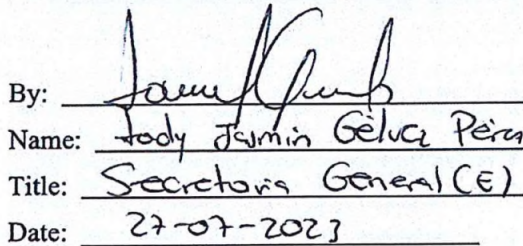 By:
Name: Jasmin Gélvez Pérez
Title: Secretaria General (E)
Date: 27-07-2023